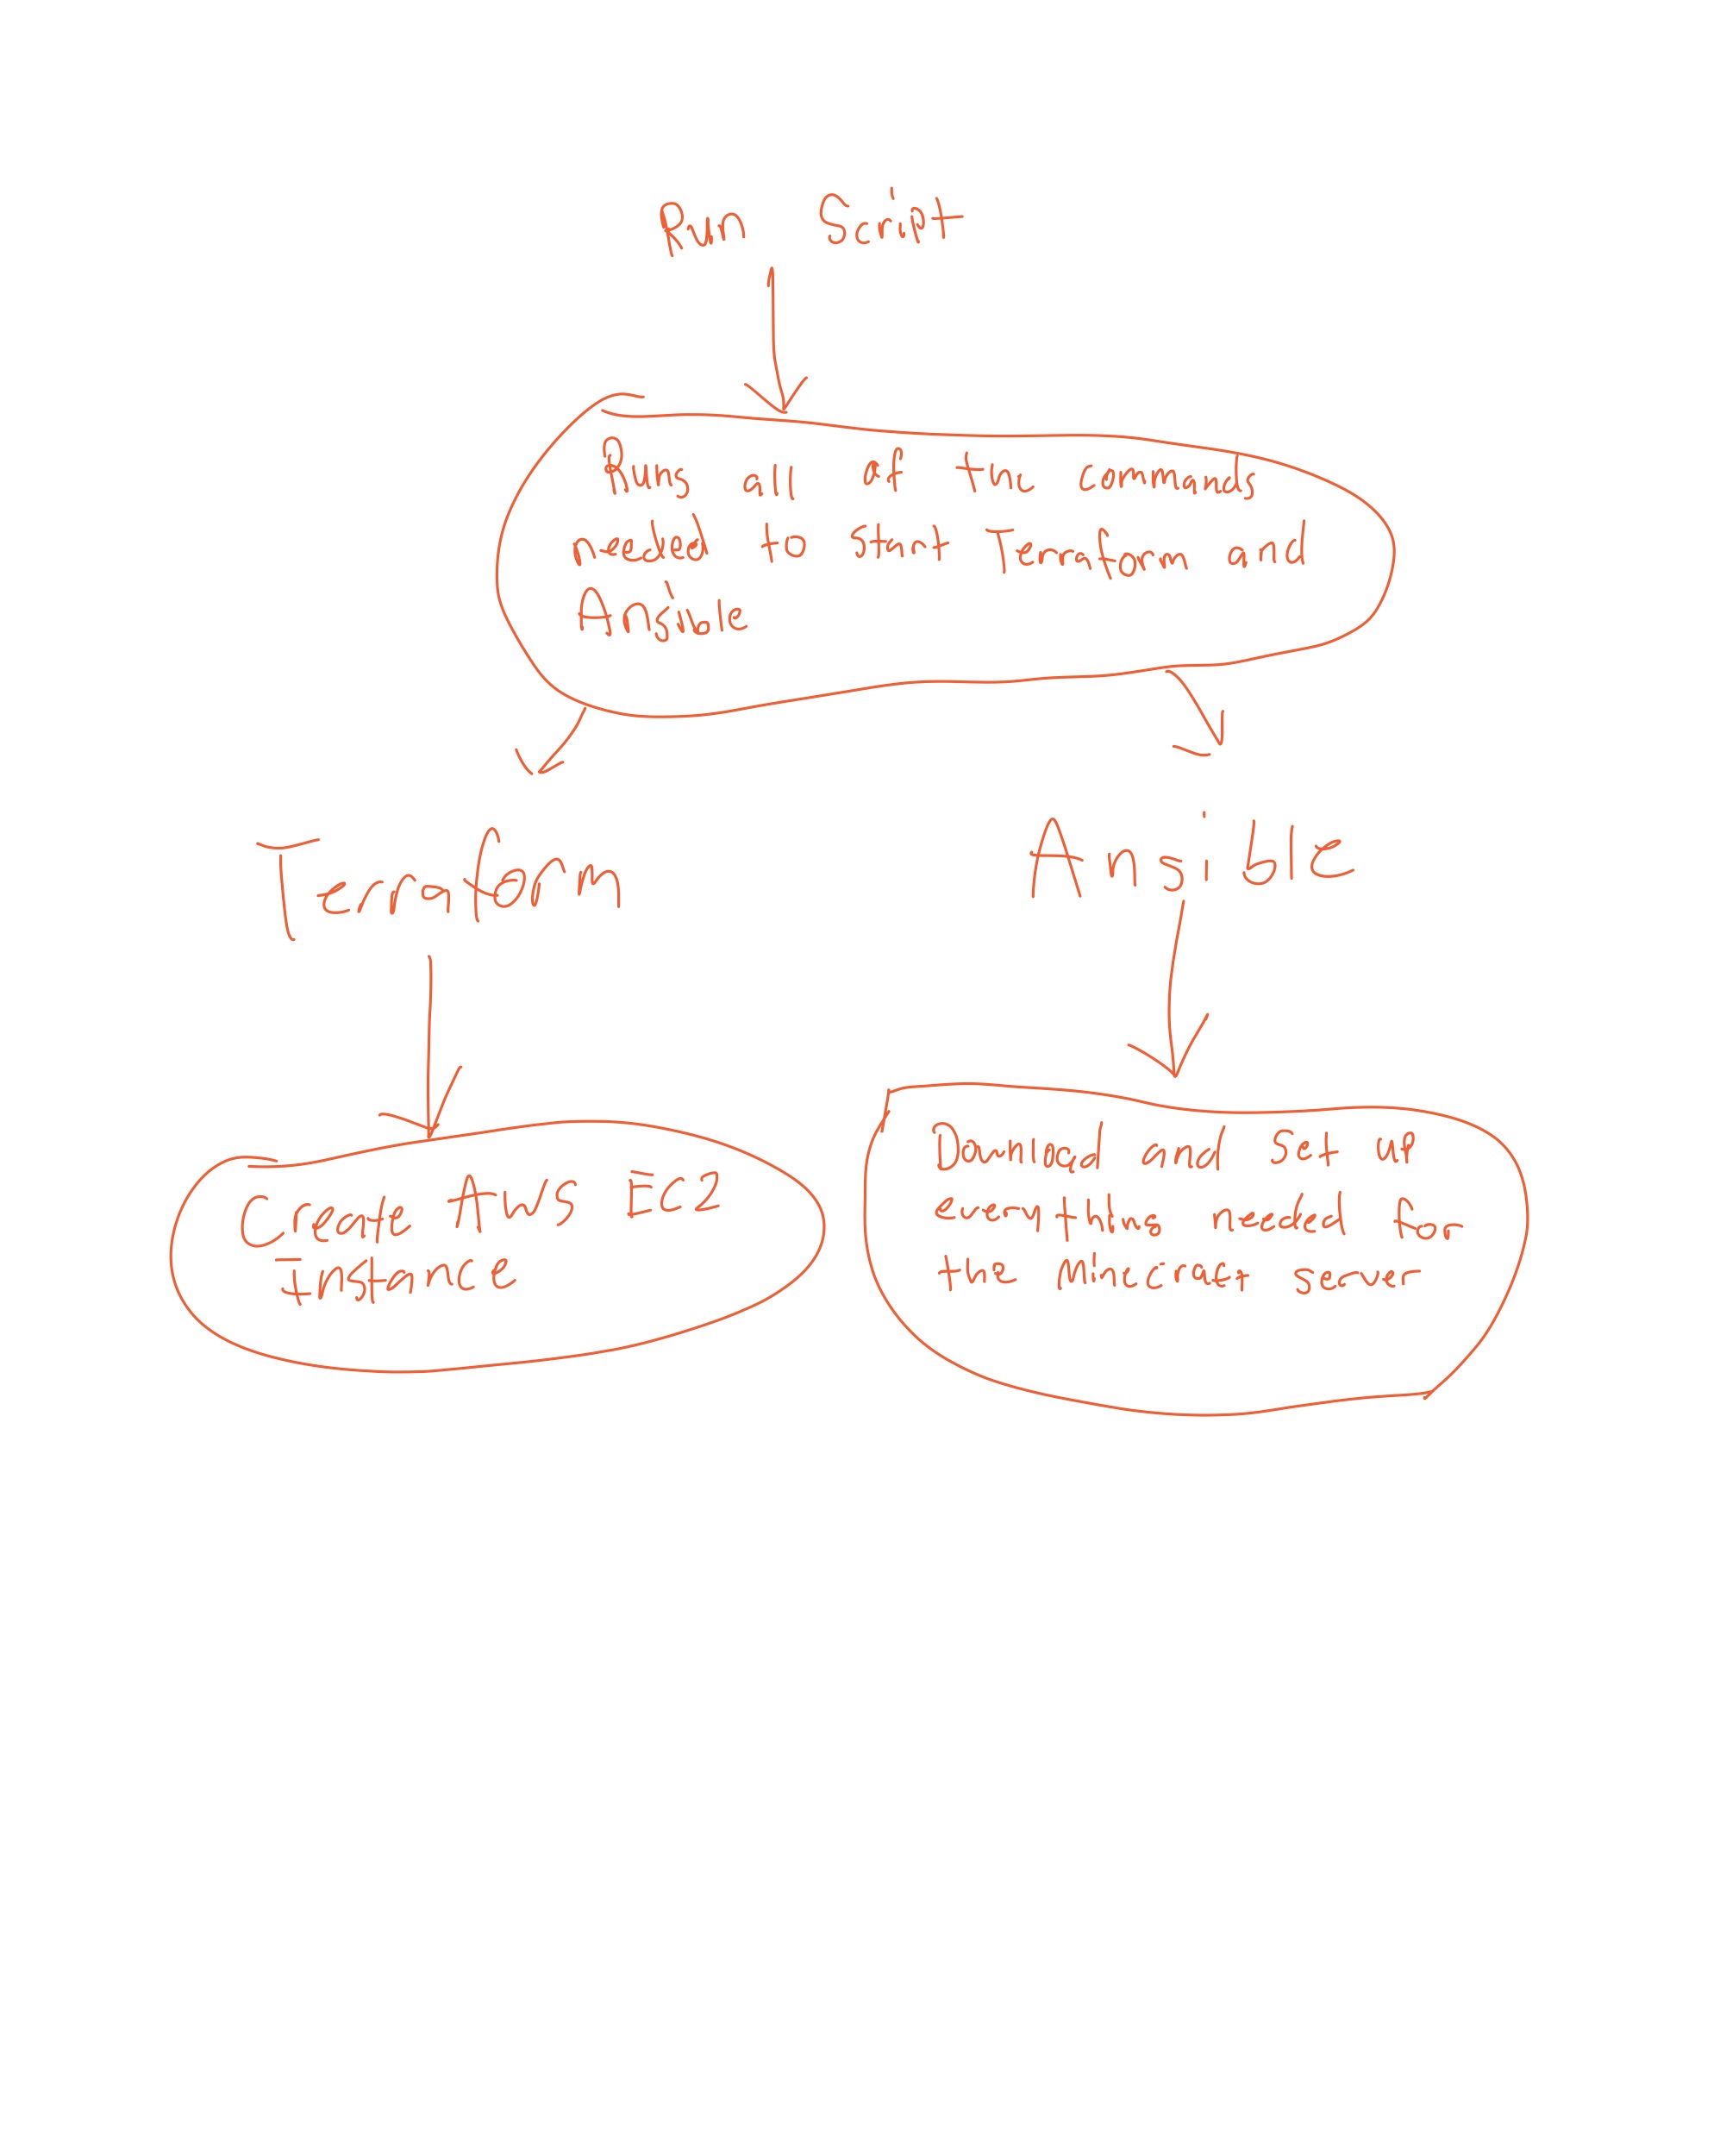 Run Script
Runs all of the commands
needed to start Terraform and
Ansible
Terraform
Ansible
Create AWS EC2
Instance
Download and set up
everything needed for
the Minecraft server